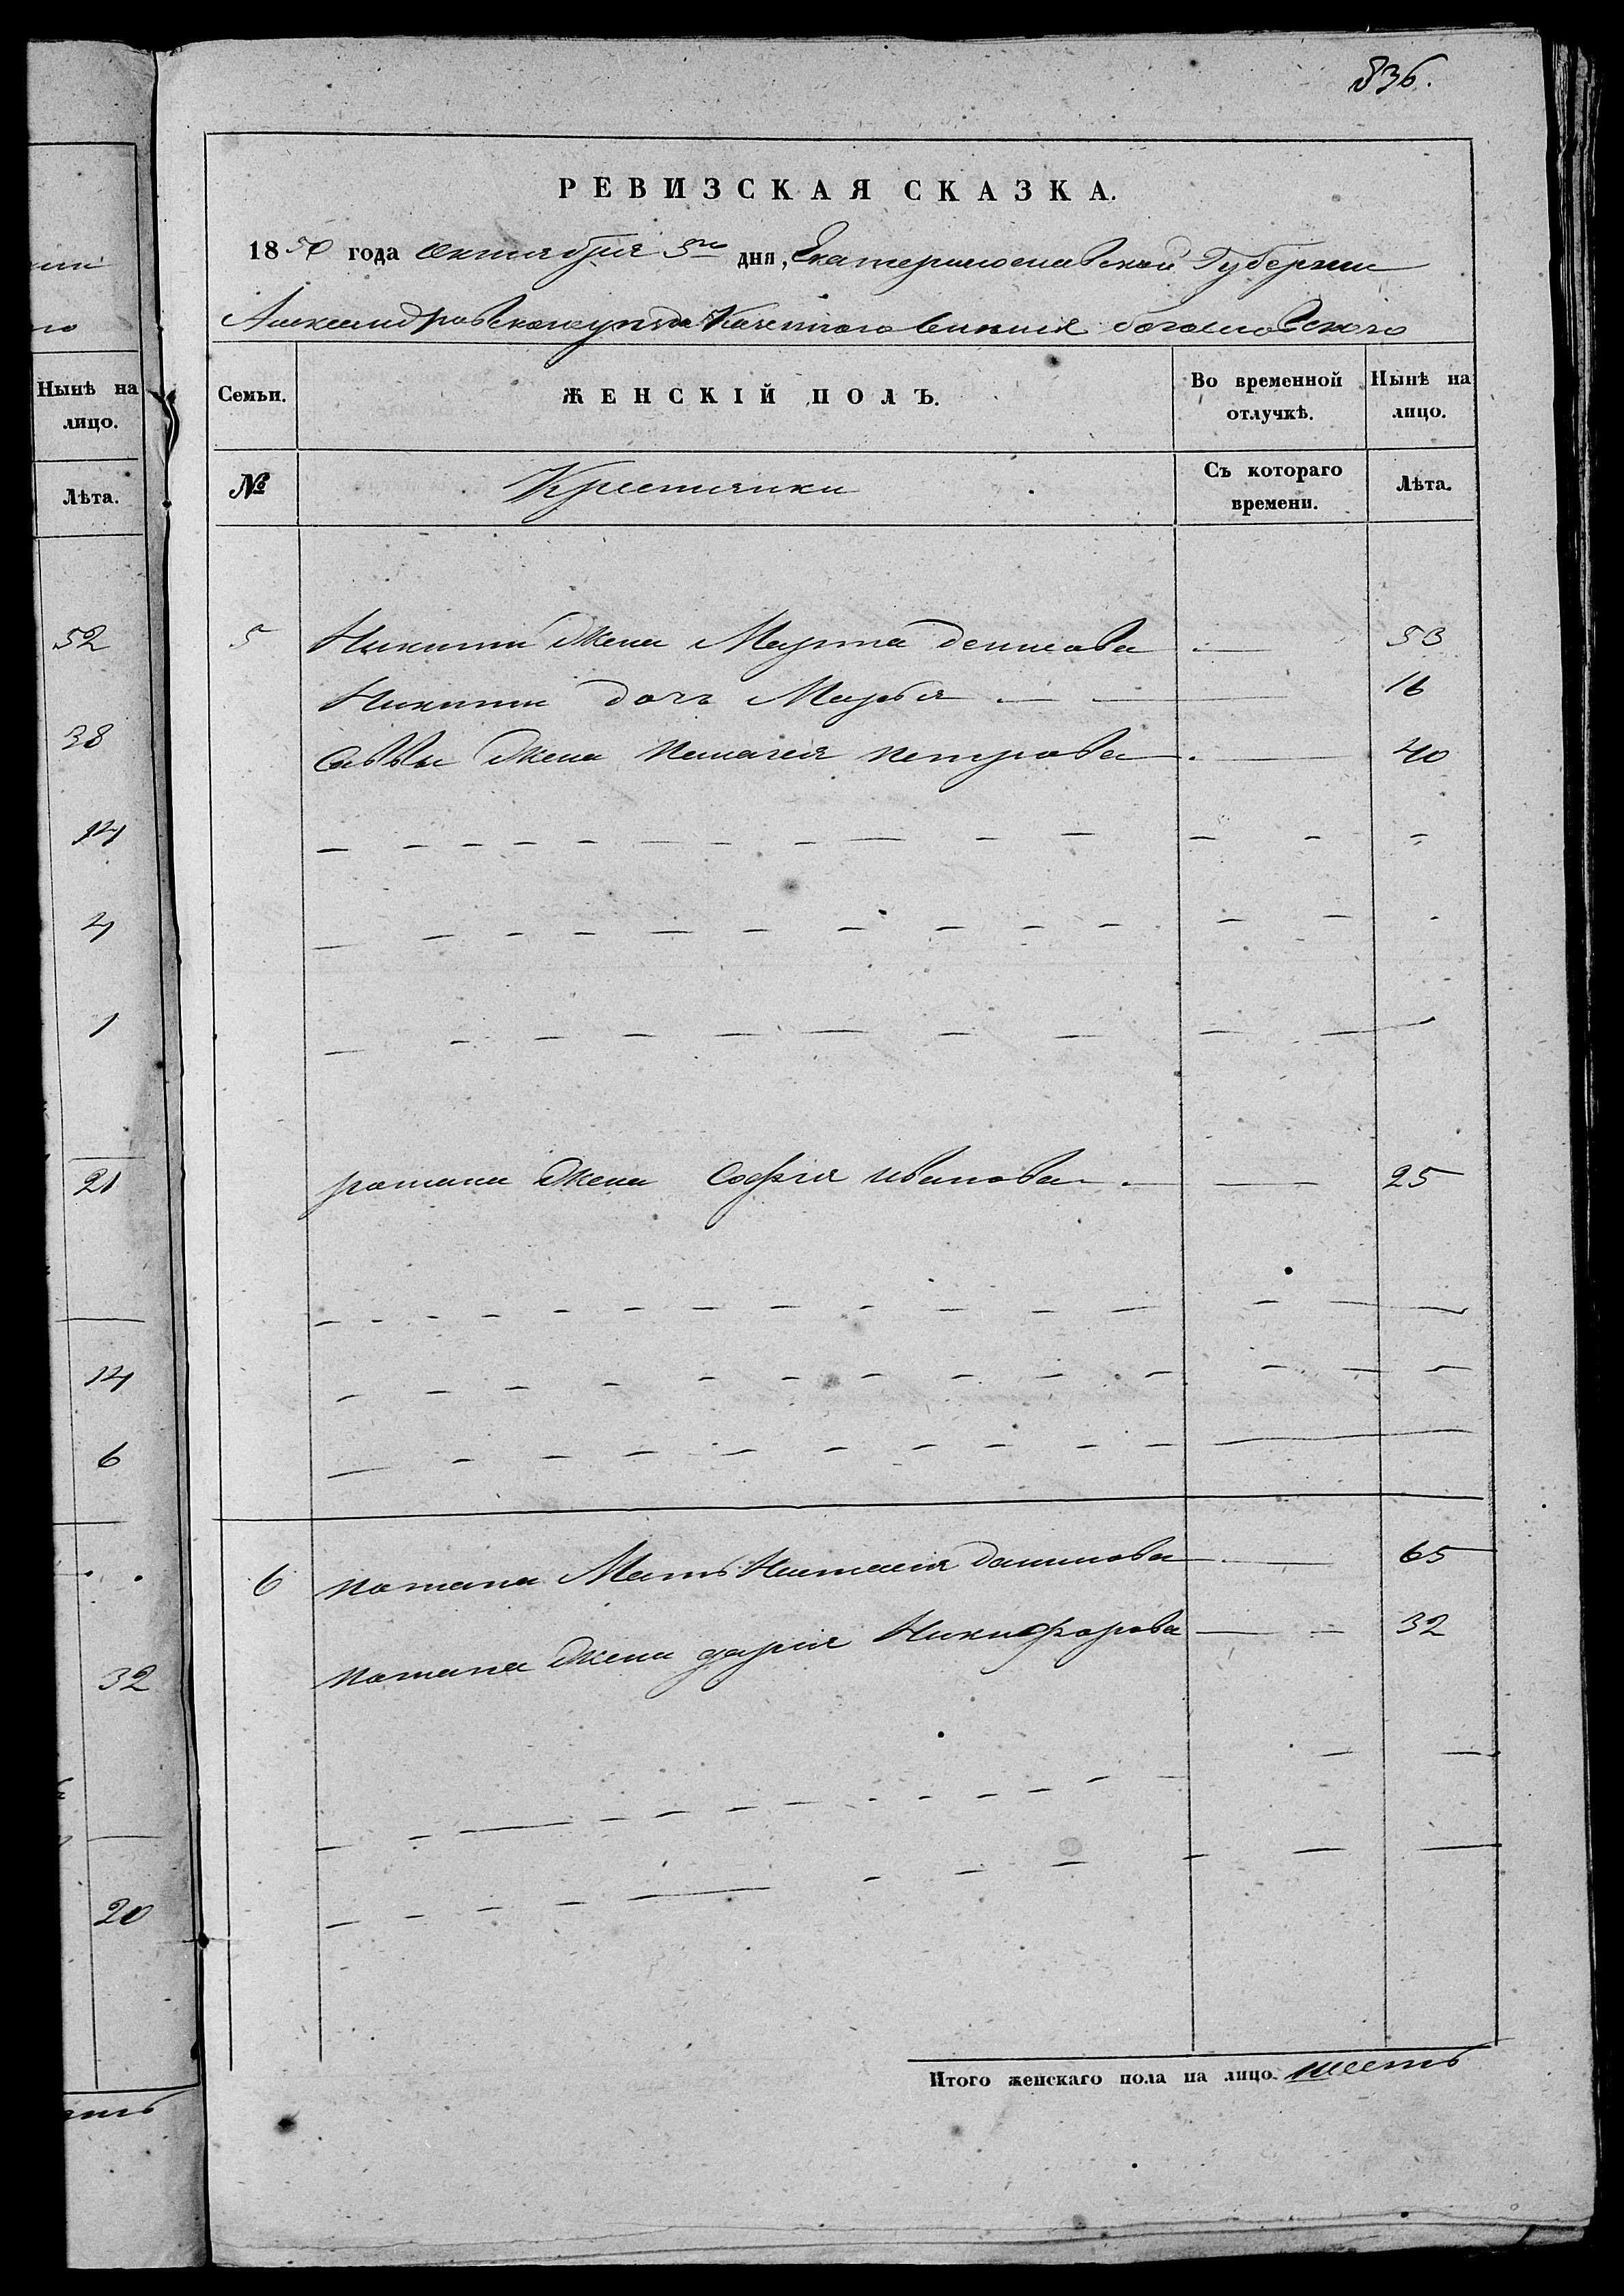 836.
РЕВИЗСКАЯ СКАЗКА.
1850 года октября 5го дня, Екатеринославской Губернии
Александровского уезда Казенного Селения богословского
Нынѣ на лицо.
Лѣта.
52
38
14
4
1
21
14
6
32
20
Семьи. ЖЕНСКІЙ ПОЛЪ. Во временной отлучкѣ. Нынѣ на лицо.
№ Крестянки Съ котораго времени. Лѣта.
5 Никиты Жена Марта денисова — 53
Никиты дочь Марья — — 16
Саввы Жена пелагея петрова — 40
романа Жена София иванова — 25
6 потапа Мать Настасия данилова — 65
потапа Жена дария Никифорова — 32
Итого женскаго пола на лицо. шесть